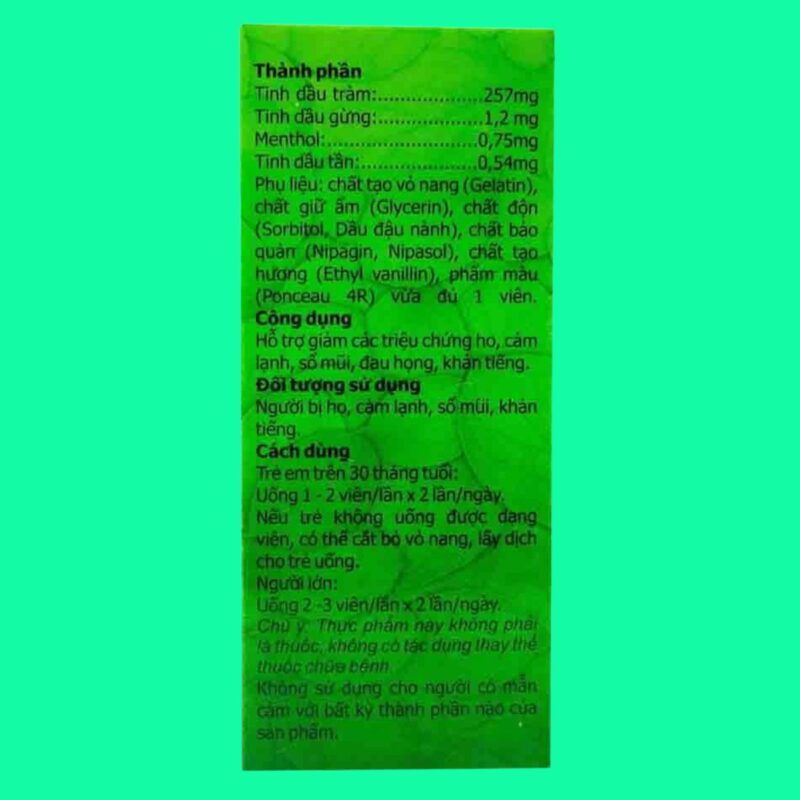 Thành phần
Tinh dầu tràm:....................257mg
Tinh dầu gừng:..................1,2 mg
Menthol:..........................0,75mg
Tinh dầu tần:....................0,54mg
Phụ liệu: chất tạo vỏ nang (Gelatin),
chất giữ ẩm (Glycerin), chất độn
(Sorbitol, Dầu đậu nành), chất bảo
quản (Nipagin, Nipasol), chất tạo
hương (Ethyl vanillin), phẩm màu
(Ponceau 4R) vừa đủ 1 viên.
Công dụng
Hỗ trợ giảm các triệu chứng ho, cảm
lạnh, sổ mũi, đau họng, khản tiếng.
Đối tượng sử dụng
Người bị ho, cảm lạnh, sổ mũi, khản
tiếng.
Cách dùng
Trẻ em trên 30 tháng tuổi:
Uống 1 - 2 viên/lần x 2 lần/ngày.
Nếu trẻ không uống được dạng
viên, có thể cắt bỏ vỏ nang, lấy dịch
cho trẻ uống.
Người lớn:
Uống 2 -3 viên/lần x 2 lần/ngày.
Chú ý: Thực phẩm này không phải
là thuốc, không có tác dụng thay thế
thuốc chữa bệnh.
Không sử dụng cho người có mẫn
cảm với bất kỳ thành phần nào của
sản phẩm.